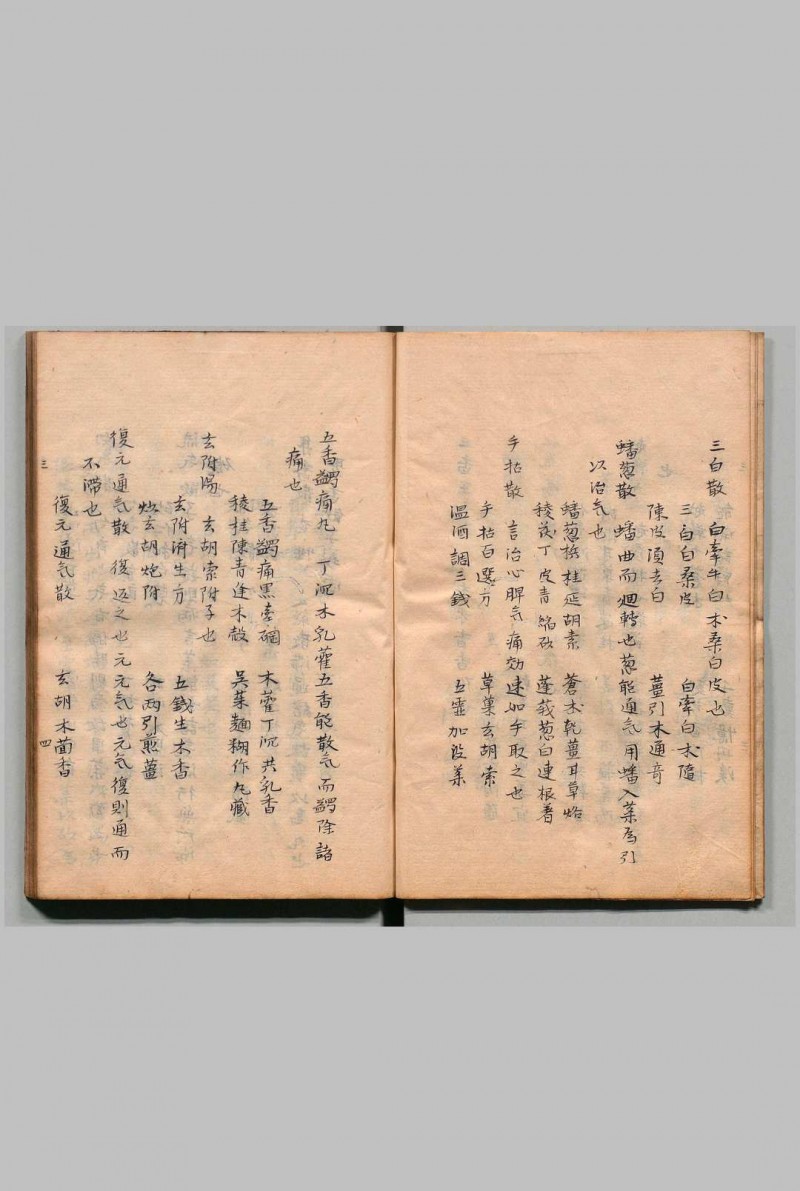 三白散　白牽牛白朮桑白皮也
三白白桑皮　白牽白朮隨
陳皮須去白　薑引木通竒
蟠葱散　蟠曲而廻轉也葱能通气用蟠入菜為引
以治气也
蟠葱梹桂延胡素　蒼朮乹薑耳草烙
稜茂丁皮青縮砂　蓬莪葱白連根着
手拈散　言治心脾气痛効速如手取之也
手拈白選方　草菓玄胡索
温酒調三錢　五霊加没薬
五香蠲痛丸　丁沉木乳藿五香能散气而蠲除諸
痛也
五香蠲痛黒牽礀　木藿丁沉共乳香
稜桂陳青逢木殻　吳茱麵糊作丸藏
玄附湯　玄胡索附子也
玄附済生方　五錢生木香
玄胡炮附　各兩引煎薑
復元通气散　復返之也元元气也元气復則通而
不滞也
復元通气散　玄胡木茴香
三　四